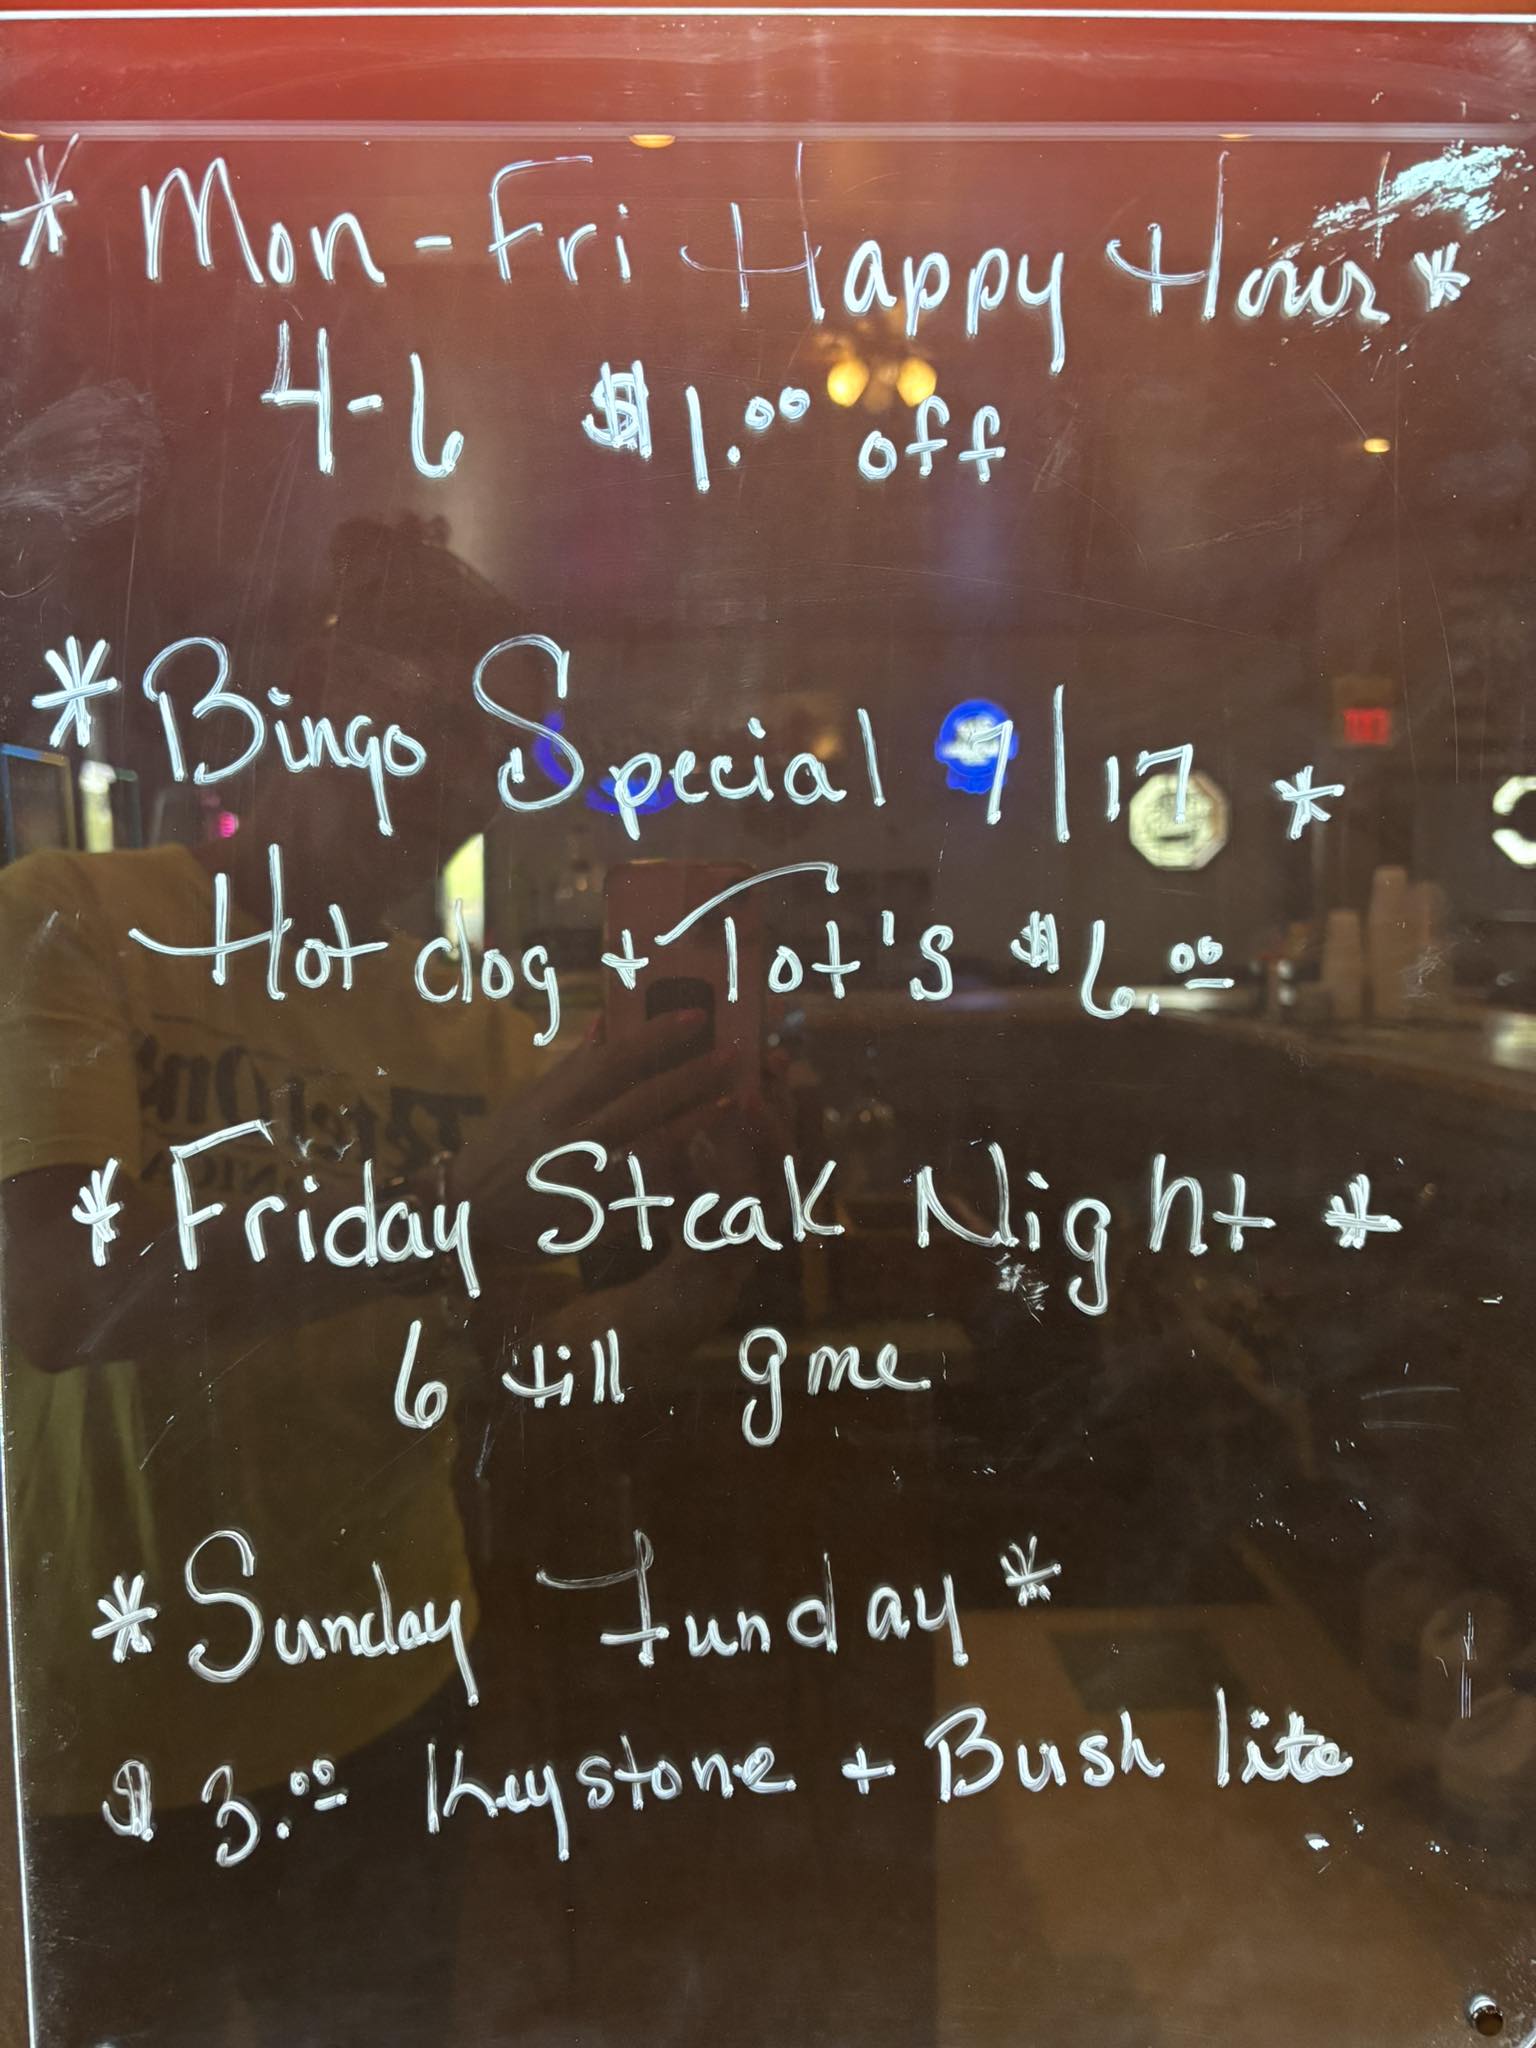 * Mon-Fri Happy Hour *
4-6 $1.00 off
* Bingo Special 7/17 *
Hot dog + Tot's $6.00
* Friday Steak Night *
6 till gme
* Sunday Funday *
$3.00 Keystone + Bush lite